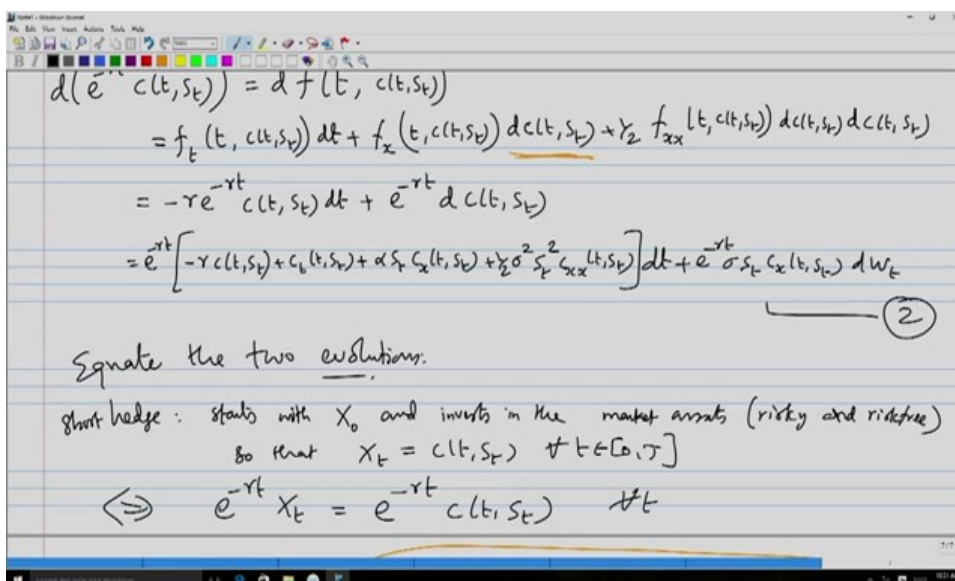 Note1 - Windows Journal
File Edit View Insert Actions Tools Help
B I
d(e^{-rt} c(t,S_t)) = d f(t, c(t,S_t))
= f_t (t, c(t,S_t)) dt + f_x (t, c(t,S_t)) dc(t,S_t) + 1/2 f_{xx} (t, c(t,S_t)) dc(t,S_t) dc(t,S_t)
= -re^{-rt} c(t,S_t) dt + e^{-rt} d c(t,S_t)
= e^{-rt} [ -r c(t,S_t) + c_t (t,S_t) + α S_t c_x (t,S_t) + 1/2 σ^2 S_t^2 c_{xx} (t,S_t) ] dt + e^{-rt} σ S_t c_x (t,S_t) dW_t
2
Equate the two evolutions.
Short hedge : starts with X_0 and invests in the market assets (risky and riskfree)
so that X_t = c(t,S_t) ∀ t ∈ [0,T]
⇔ e^{-rt} X_t = e^{-rt} c(t,S_t) ∀t